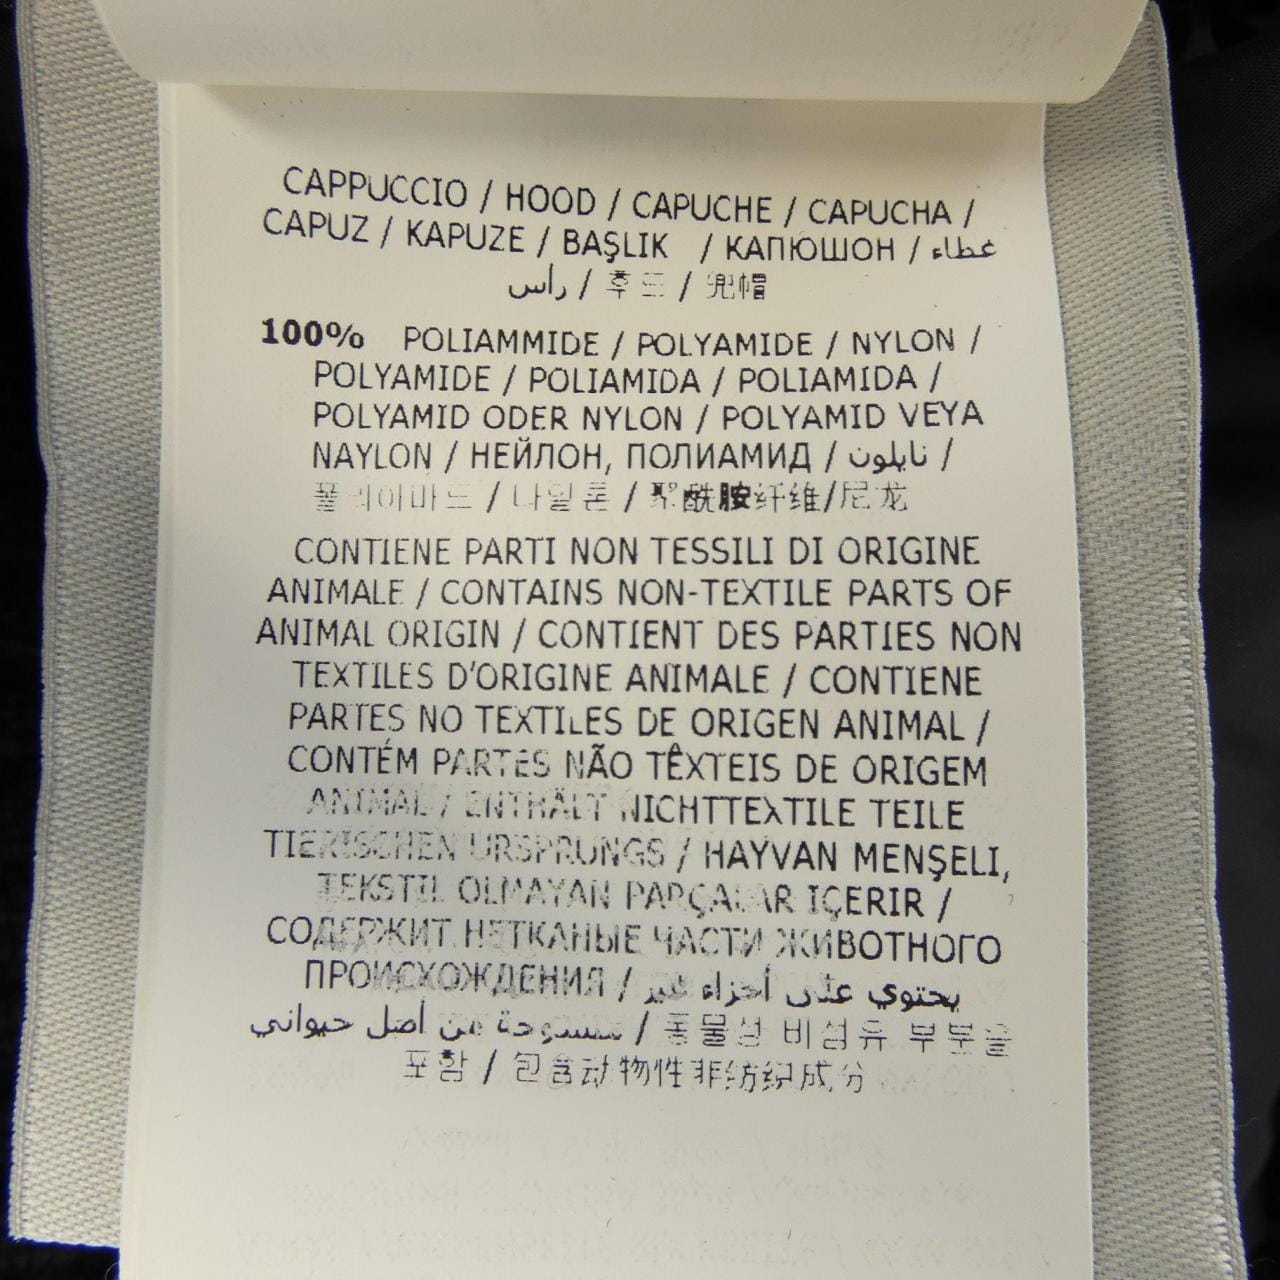 CAPPUCCIO / HOOD / CAPUCHE / CAPUCHA /
CAPUZ / KAPUZE / BAŞLIK / КАПЮШОН / غطاء
رأس / 후드 / 兜帽
100% POLIAMMIDE / POLYAMIDE / NYLON /
POLYAMIDE / POLIAMIDA / POLIAMIDA /
POLYAMID ODER NYLON / POLYAMID VEYA
NAYLON / НЕЙЛОН, ПОЛИАМИД / نايلون /
폴리아마드 / 나일론 / 聚酰胺纤维/尼龙
CONTIENE PARTI NON TESSILI DI ORIGINE
ANIMALE / CONTAINS NON-TEXTILE PARTS OF
ANIMAL ORIGIN / CONTIENT DES PARTIES NON
TEXTILES D'ORIGINE ANIMALE / CONTIENE
PARTES NO TEXTILES DE ORIGEN ANIMAL /
CONTÉM PARTES NÃO TÊXTEIS DE ORIGEM
ANIMAL / ENTHÄLT NICHTTEXTILE TEILE
TIERISCHEN URSPRUNGS / HAYVAN MENŞELI,
TEKSTIL OLMAYAN PARÇALAR IÇERIR /
СОДЕРЖИТ НЕТКАНЫЕ ЧАСТИ ЖИВОТНОГО
ПРОИСХОЖДЕНИЯ / يحتوي على أجزاء غير
منسوجة من أصل حيواني / 동물성 비섬유 부분을
포함 / 包含动物性非纺织成分